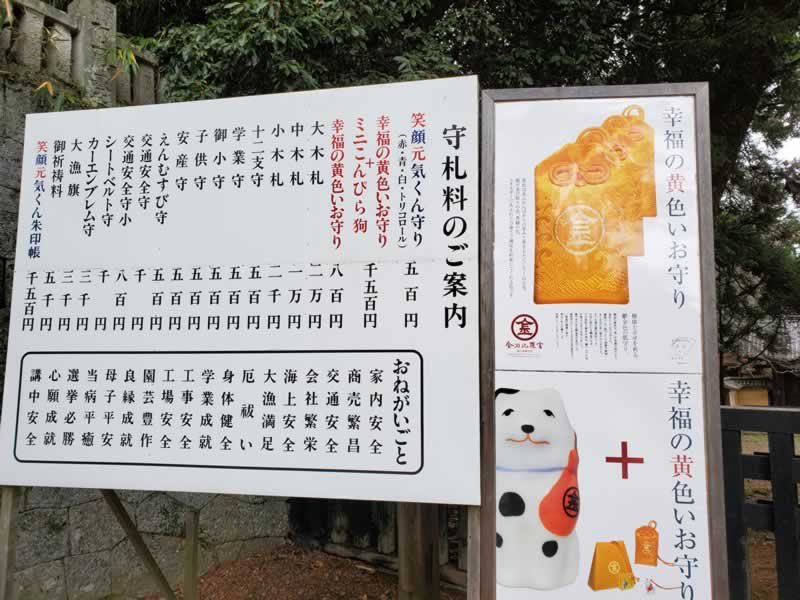 守札料のご案内
笑顔元気くん守り 五百円
(赤・青・白・トリコロール)
幸福の黄色いお守り
+
ミニこんぴら狗 千五百円
幸福の黄色いお守り 八百円
大木札 二万円
中木札 一万円
小木札 二千円
十二支守 五百円
学業守 五百円
御小守 五百円
子供守 五百円
安産守 五百円
えんむすび守 五百円
交通安全守 千円
交通安全守小 八百円
シートベルト守 千円
カーエンブレム守 三千円
大漁旗 三千円
御祈祷料 五千円
笑顔元気くん朱印帳 千五百円
おねがいごと
家内安全
商売繁昌
交通安全
会社繁栄
海上安全
大漁満足
厄祓い
身体健全
学業成就
工事安全
工場安全
園芸豊作
良縁成就
母子平安
当病平癒
選挙必勝
心願成就
講中安全
幸福の黄色いお守り
金
金刀比羅宮
幸福の黄色いお守り
+
金